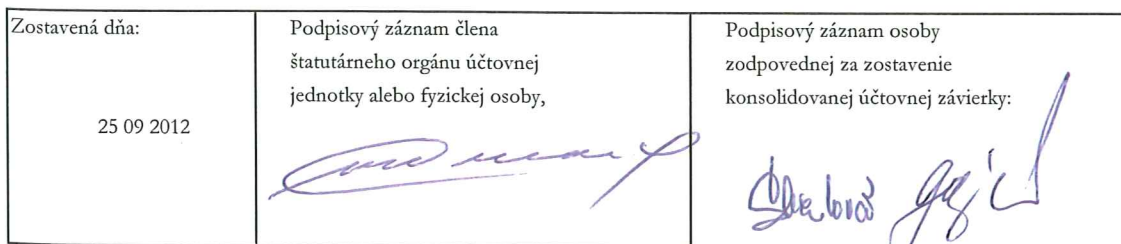 Zostavená dňa:
25 09 2012
Podpisový záznam člena
štatutárneho orgánu účtovnej
jednotky alebo fyzickej osoby,
Podpisový záznam osoby
zodpovednej za zostavenie
konsolidovanej účtovnej závierky: